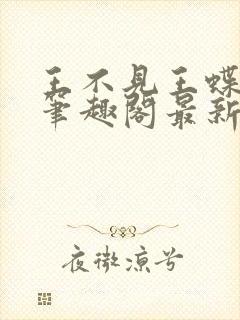 王不见王蝶
笔趣阁最新
夜微凉兮